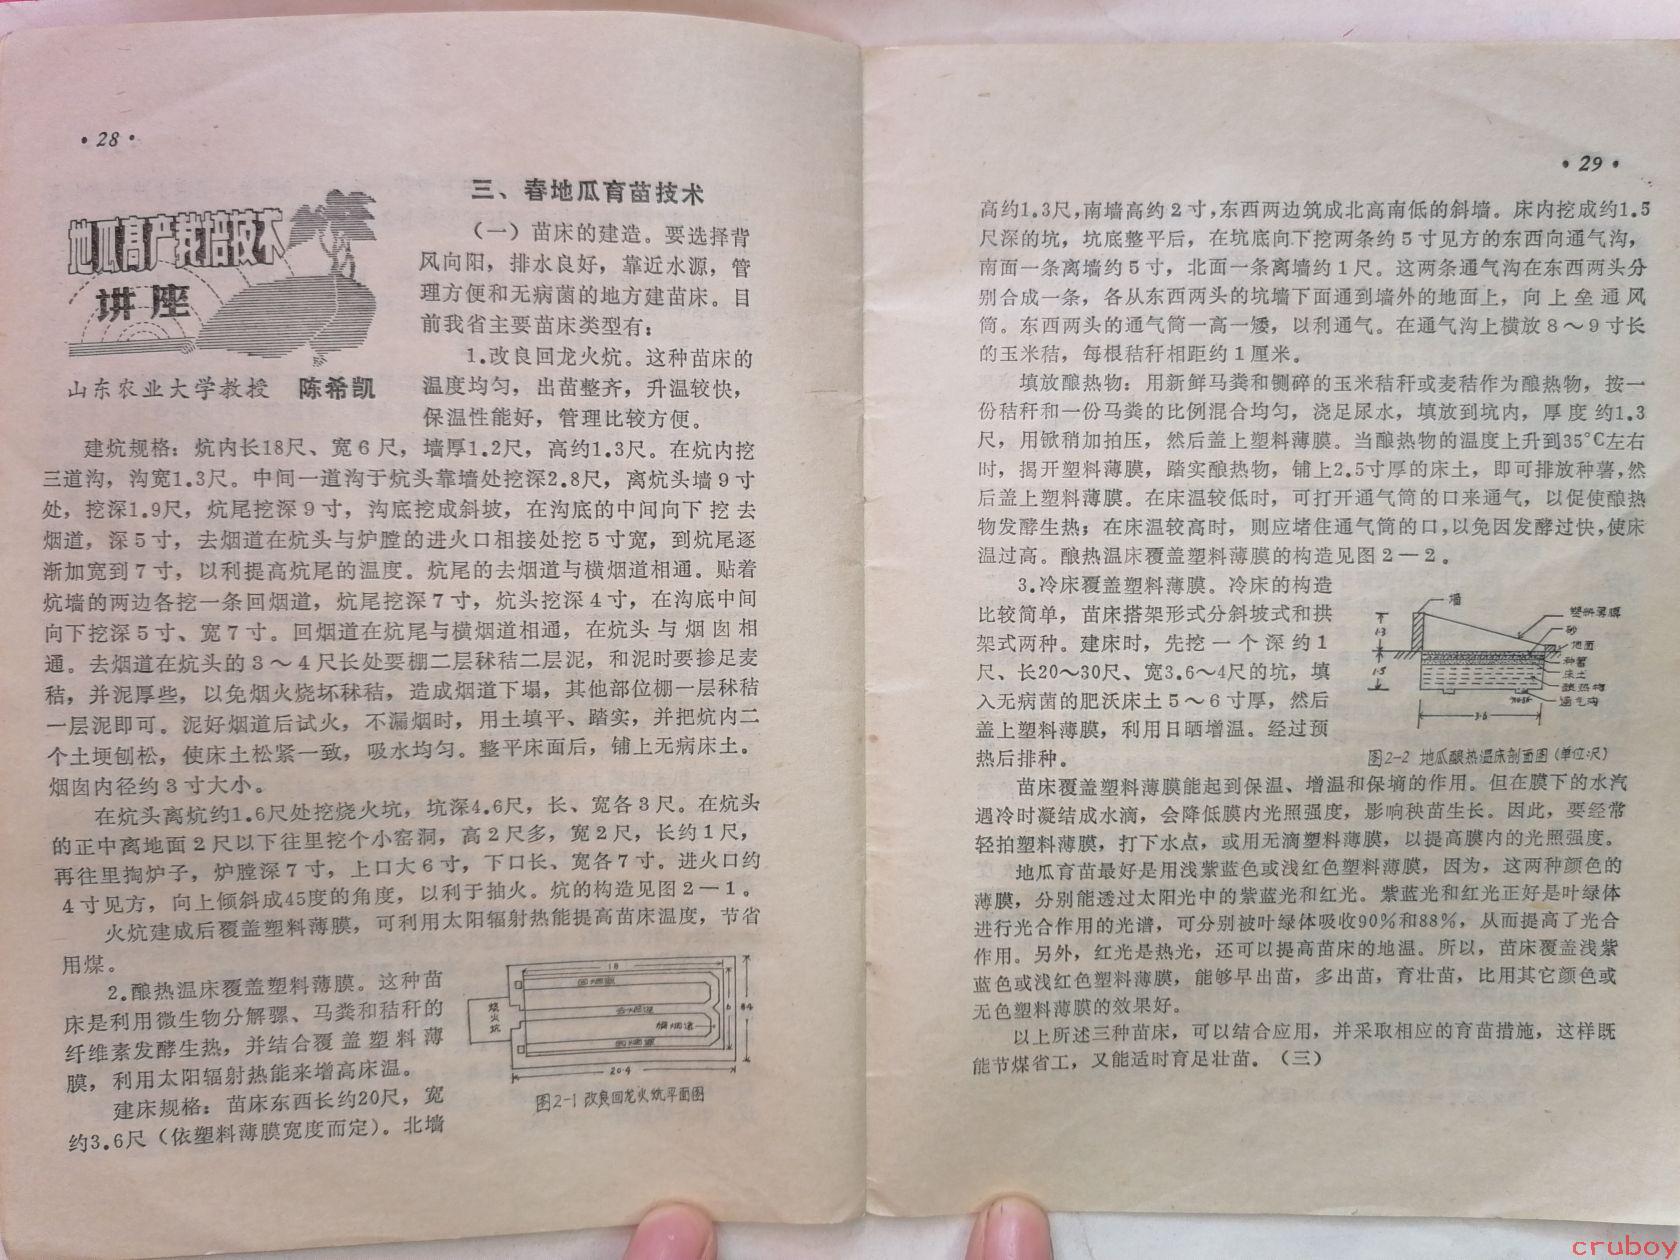 • 28 •
地瓜高产栽培技术
讲座
山东农业大学教授　陈希凯
三、春地瓜育苗技术
（一）苗床的建造。要选择背
风向阳，排水良好，靠近水源，管
理方便和无病菌的地方建苗床。目
前我省主要苗床类型有：
1.改良回龙火炕。这种苗床的
温度均匀，出苗整齐，升温较快，
保温性能好，管理比较方便。
建炕规格：炕内长18尺、宽6尺，墙厚1.2尺，高约1.3尺。在炕内挖
三道沟，沟宽1.3尺。中间一道沟于炕头靠墙处挖深2.8尺，离炕头墙9寸
处，挖深1.9尺，炕尾挖深9寸，沟底挖成斜坡，在沟底的中间向下挖去
烟道，深5寸，去烟道在炕头与炉膛的进火口相接处挖5寸宽，到炕尾逐
渐加宽到7寸，以利提高炕尾的温度。炕尾的去烟道与横烟道相通。贴着
炕墙的两边各挖一条回烟道，炕尾挖深7寸，炕头挖深4寸，在沟底中间
向下挖深5寸、宽7寸。回烟道在炕尾与横烟道相通，在炕头与烟囱相
通。去烟道在炕头的3～4尺长处要棚二层秫秸二层泥，和泥时要掺足麦
秸，并泥厚些，以免烟火烧坏秫秸，造成烟道下塌，其他部位棚一层秫秸
一层泥即可。泥好烟道后试火，不漏烟时，用土填平、踏实，并把炕内二
个土埂刨松，使床土松紧一致，吸水均匀。整平床面后，铺上无病床土。
烟囱内径约3寸大小。
在炕头离炕约1.6尺处挖烧火坑，坑深4.6尺，长、宽各3尺。在炕头
的正中离地面2尺以下往里挖个小窑洞，高2尺多，宽2尺，长约1尺，
再往里掏炉子，炉膛深7寸，上口大6寸，下口长、宽各7寸。进火口约
4寸见方，向上倾斜成45度的角度，以利于抽火。炕的构造见图2—1。
火炕建成后覆盖塑料薄膜，可利用太阳辐射热能提高苗床温度，节省
用煤。
2.酿热温床覆盖塑料薄膜。这种苗
床是利用微生物分解骡、马粪和秸秆的
纤维素发酵生热，并结合覆盖塑料薄
膜，利用太阳辐射热能来增高床温。
建床规格：苗床东西长约20尺，宽
约3.6尺（依塑料薄膜宽度而定）。北墙
18
回烟道
去烟道
横烟道
回烟道
烧火坑
6
8.4
20.4
图2-1 改良回龙火炕平面图
• 29 •
高约1.3尺，南墙高约2寸，东西两边筑成北高南低的斜墙。床内挖成约1.5
尺深的坑，坑底整平后，在坑底向下挖两条约5寸见方的东西向通气沟，
南面一条离墙约5寸，北面一条离墙约1尺。这两条通气沟在东西两头分
别合成一条，各从东西两头的坑墙下面通到墙外的地面上，向上垒通风
筒。东西两头的通气筒一高一矮，以利通气。在通气沟上横放8～9寸长
的玉米秸，每根秸秆相距约1厘米。
填放酿热物：用新鲜马粪和铡碎的玉米秸秆或麦秸作为酿热物，按一
份秸秆和一份马粪的比例混合均匀，浇足尿水，填放到坑内，厚度约1.3
尺，用锨稍加拍压，然后盖上塑料薄膜。当酿热物的温度上升到35°C左右
时，揭开塑料薄膜，踏实酿热物，铺上2.5寸厚的床土，即可排放种薯，然
后盖上塑料薄膜。在床温较低时，可打开通气筒的口来通气，以促使酿热
物发酵生热；在床温较高时，则应堵住通气筒的口，以免因发酵过快，使床
温过高。酿热温床覆盖塑料薄膜的构造见图2—2。
3.冷床覆盖塑料薄膜。冷床的构造
比较简单，苗床搭架形式分斜坡式和拱
架式两种。建床时，先挖一个深约1
尺、长20～30尺、宽3.6～4尺的坑，填
入无病菌的肥沃床土5～6寸厚，然后
盖上塑料薄膜，利用日晒增温。经过预
热后排种。
墙
塑料薄膜
砂
地面
种薯
床土
酿热物
通气沟
1.3
1.5
3.6
图2-2 地瓜酿热温床剖面图（单位:尺）
苗床覆盖塑料薄膜能起到保温、增温和保墒的作用。但在膜下的水汽
遇冷时凝结成水滴，会降低膜内光照强度，影响秧苗生长。因此，要经常
轻拍塑料薄膜，打下水点，或用无滴塑料薄膜，以提高膜内的光照强度。
地瓜育苗最好是用浅紫蓝色或浅红色塑料薄膜，因为，这两种颜色的
薄膜，分别能透过太阳光中的紫蓝光和红光。紫蓝光和红光正好是叶绿体
进行光合作用的光谱，可分别被叶绿体吸收90%和88%，从而提高了光合
作用。另外，红光是热光，还可以提高苗床的地温。所以，苗床覆盖浅紫
蓝色或浅红色塑料薄膜，能够早出苗，多出苗，育壮苗，比用其它颜色或
无色塑料薄膜的效果好。
以上所述三种苗床，可以结合应用，并采取相应的育苗措施，这样既
能节煤省工，又能适时育足壮苗。（三）
cruboy